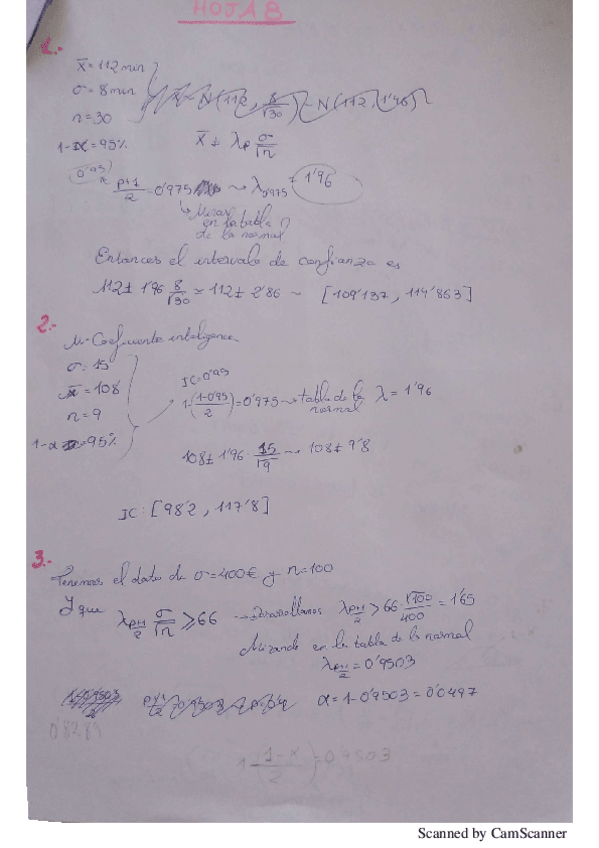 HOJA 8
1.-
x̄ = 112 min
σ = 8 min
n = 30
1-α = 95%
x̄ ± λp σ/√n
0'95
p+1/2 = 0'975 ⇝ λ0'975 = 1'96
↳ Mirar en la tabla de la normal
Entonces el intervalo de confianza es
112 ± 1'96 8/√30 ≃ 112 ± 2'86 ~ [109'137, 114'863]
2.-
M-Coeficiente inteligencia
σ = 15
x̄ = 108
n = 9
1-α = 95%
IC = 0'95
1-(1-0'95/2) = 0'975 → tabla de la normal λ = 1'96
108 ± 1'96 · 15/√9 → 108 ± 9'8
IC: [98'2, 117'8]
3.-
Tenemos el dato de σ = 400€ y n = 100
Y que λp+1/2 σ/√n ⩾ 66 → Desarrollamos λp+1/2 > 66 · √100/400 = 1'65
Mirando en la tabla de la normal
λp+1/2 = 0'9503
α = 1-0'9503 = 0'0497
0'82.89
1-(1-x/2) = 0'9503
Scanned by CamScanner